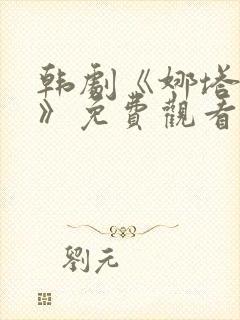 韩劇《娜塔
》免費觀看
劉元